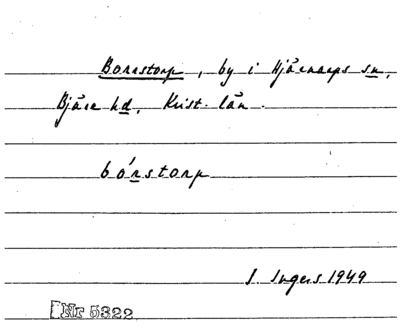 Borrstorp, by i Hjärnarps sn,
Bjäre hd, Krist. län.
bórstorp
I Ingers 1949
Nr 5322